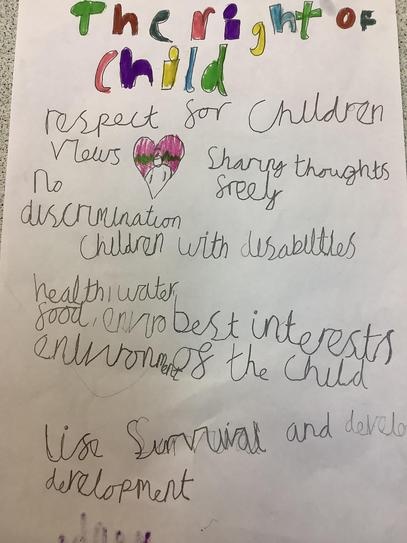 The right of
Child
respect for Children
Views
Sharing thoughts
freely
No
discrimination
Children with disabilities
health, water
food, enviro
environment
best interests
of the Child
life Survival and develo
development